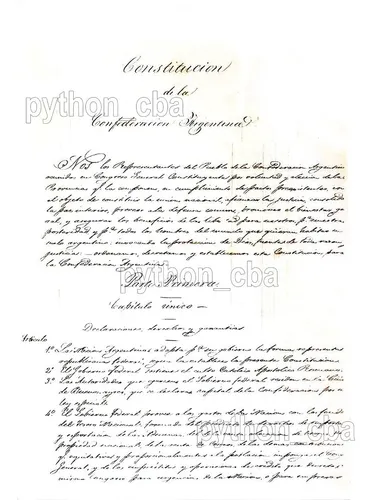 Constitucion
de la
Confederacion Argentina
Nos los Representantes del Pueblo de la Confederacion Argentina
reunidos en Congreso General Constituyente por voluntad y eleccion de las
Provincias q. la componen, en cumplimiento de pactos preexistentes, con
el objeto de constituir la union nacional, afianzar la justicia, consolidar
la paz interior, proveer a la defensa comun, promover el bienestar gene-
ral, y asegurar los beneficios de la libertad para nosotros, p.a nuestra
posteridad y p.a todos los hombres del mundo que quieran habitar en el
suelo argentino: invocando la proteccion de Dios, fuente de toda razon y
justicia: ordenamos, decretamos y establecemos esta Constitucion para
la Confederacion Argentina.
Parte Primera
Capítulo único
Declaraciones, derechos y garantias
Artículo
1.o La Nacion Argentina adopta p.a su gobierno la forma representativa
republicana federal, segun la establece la presente Constitucion
2.o El Gobierno federal sostiene el culto Católico Apostólico Romano.
3.o Las Autoridades que ejercen el Gobierno federal residen en la Ciudad
de Buenos Ayres, que se declara capital de la Confederacion por una
ley especial
4.o El Gobierno Federal provee a los gastos de la Nacion con los fondos
del Tesoro Nacional, formado del producto de derechos de importacion
y esportacion de las Aduanas
propiedad nacional, de las demas contribuciones
equitativa y proporcionalmente a la poblacion imponga el Congreso
General, y de los empréstitos y operaciones de crédito que decrete el
mismo Congreso para urgencias de la Nacion, o para empresas
python_cba
python_cba
python_cba
python_cba